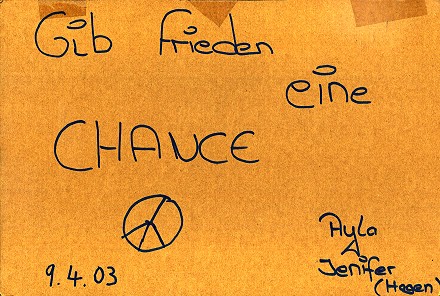 Gib Frieden
eine
CHANCE
Ayla
Jenifer
(Hagen)
9.4.03